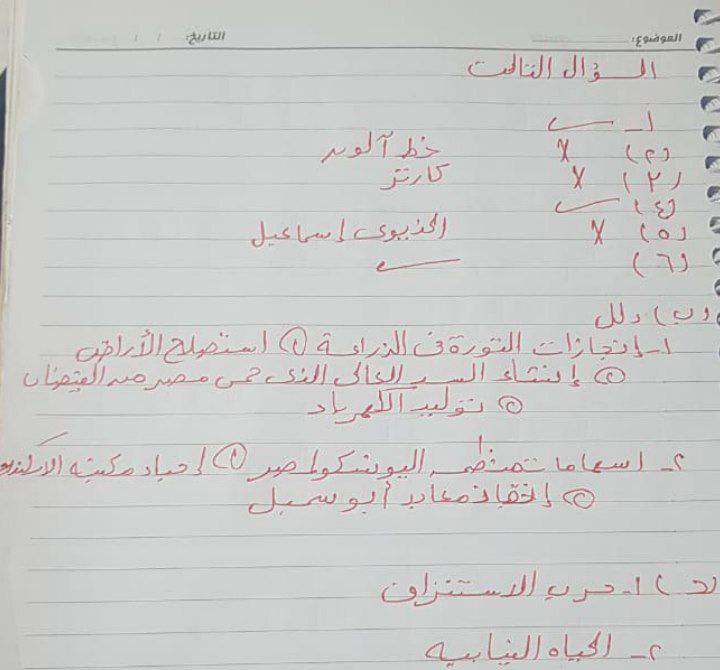 الموضوع: التاريخ: / /
السؤال الثالث
أ-
(٢) X خط آلون
(٣) X كارتر
(٤)
(٥) X الخديوى إسماعيل
(٦)
(ب) دلل
١- إنجازات الثورة فى الزراعة ① استصلاح الأراضى
② إنشاء السد العالى الذى حمى مصر من الفيضان
③ توليد الكهرباء
٢- اسهامات منظمة اليونسكو لمصر ① إحياء مكتبة الاسكندرية
② إنقاذ معابد أبو سمبل
(د) ١- حرب الاستنزاف
٢- الحياه النيابيه